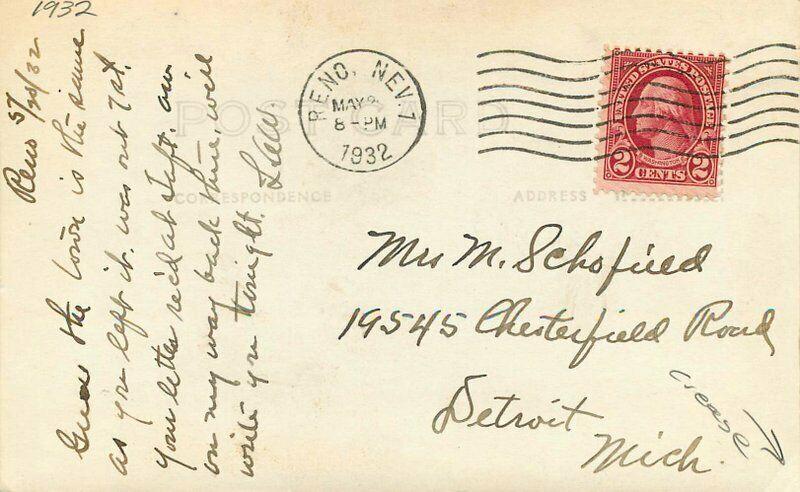 1932
Reno 5/28/32
Guess the town is the same
as you left it. was out 7st.
your letter rec'd at Taft. am
on my way back there, will
write you tonight. Lew.
POST CARD
CORRESPONDENCE
ADDRESS
RENO, NEV. 1
MAY
8 - PM
1932
UNITED STATES POSTAGE
WASHINGTON
2 CENTS 2
Mrs M. Schofield
19545 Chesterfield Road
Detroit
Mich.
crease